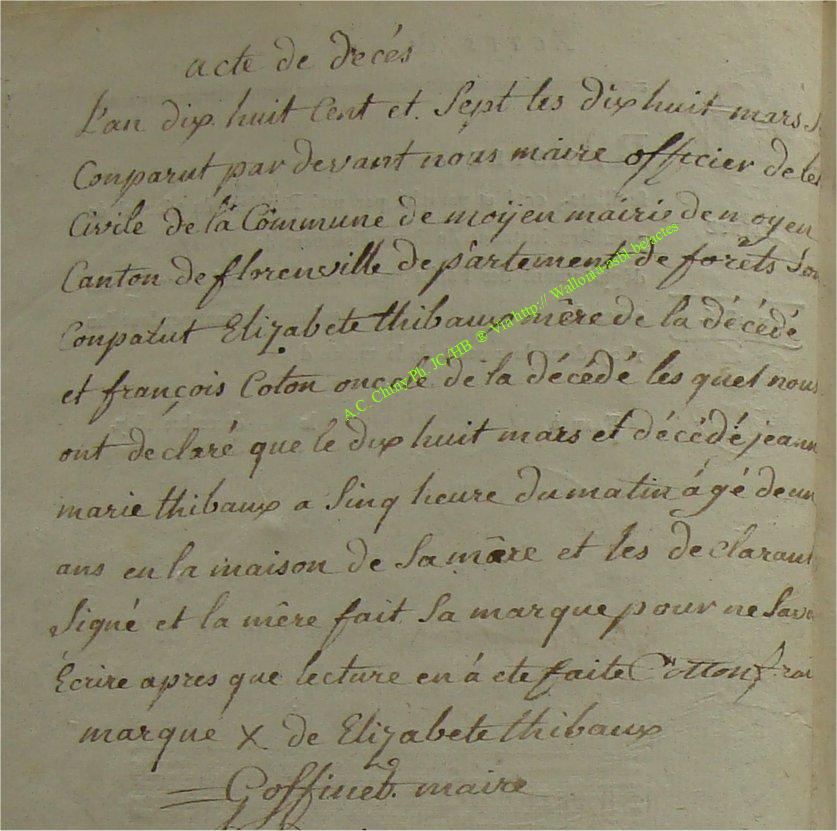 acte de décés
L'an dix huit Cent et Sept les dix huit mars
Conparut par devant nous maire officier de
Civile de la Commune de moÿen mairie de moyen
Canton de florenville département de forêts
Conparut Elizabete thibaux mêre de la décédé
et françois Coton oncele de la décédé les quel nous
ont declaré que le dix huit mars et décédé jeann
marie thibaux a Sinq heure du matin ágé de un
ans en la maison de Sa mære et les declarant
Signé et la mêre fait Sa marque pour ne Sav
Ecrire apres que lecture en á ete faite Cotton frai
marque X de Elizabete thibaux
Goffinet. maire
A.C. Chiny Ph. JC/HB @ Via http:// Wallonia-asbl.be/actes